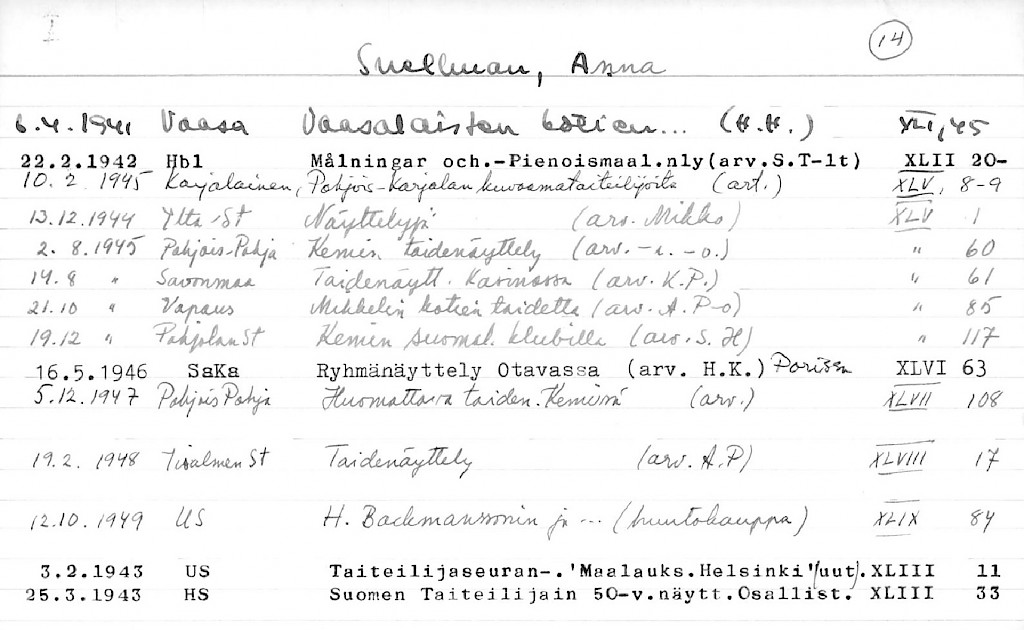 I
14
Snellman, Anna
6.4.1941 Vaasa Vaasalaisten kotien... (H.H.) XLI, 45
22.2.1942 Hbl Målningar och.-Pienoismaal.nly(arv.S.T-lt) XLII 20-
10.2.1945 Karjalainen, Pohjois-Karjalan kuvaamataiteilijoita (art.) XLV, 8-9
13.12.1944 Ylta-St Näyttelyjä (arv. Mikko) XLV 1
2.8.1945 Pohjois-Pohja Kemin taidenäyttely (arv. -i. -o.) " 60
14.8 " Savonmaa Taidenäytt. (arv. K.P.) " 61
21.10 " Vapaus Mikkelin kotien taidetta (arv. A.P-o) " 85
19.12 " PohjolanSt Kemin suomal. klubilla (arv. S.H) " 117
16.5.1946 SaKa Ryhmänäyttely Otavassa (arv. H.K.) Porissa XLVI 63
5.12.1947 Pohjois Pohja Huomattava taiden. Kemissä (arv.) XLVII 108
19.2.1948 Iisalmen St Taidenäyttely (arv. A.P) XLVIII 17
12.10.1949 US H. Backmanssonin ja ... (huutokauppa) XLIX 84
3.2.1943 US Taiteilijaseuran-.'Maalauks.Helsinki'(uut). XLIII 11
25.3.1943 HS Suomen Taiteilijain 50-v.näytt.Osallist. XLIII 33